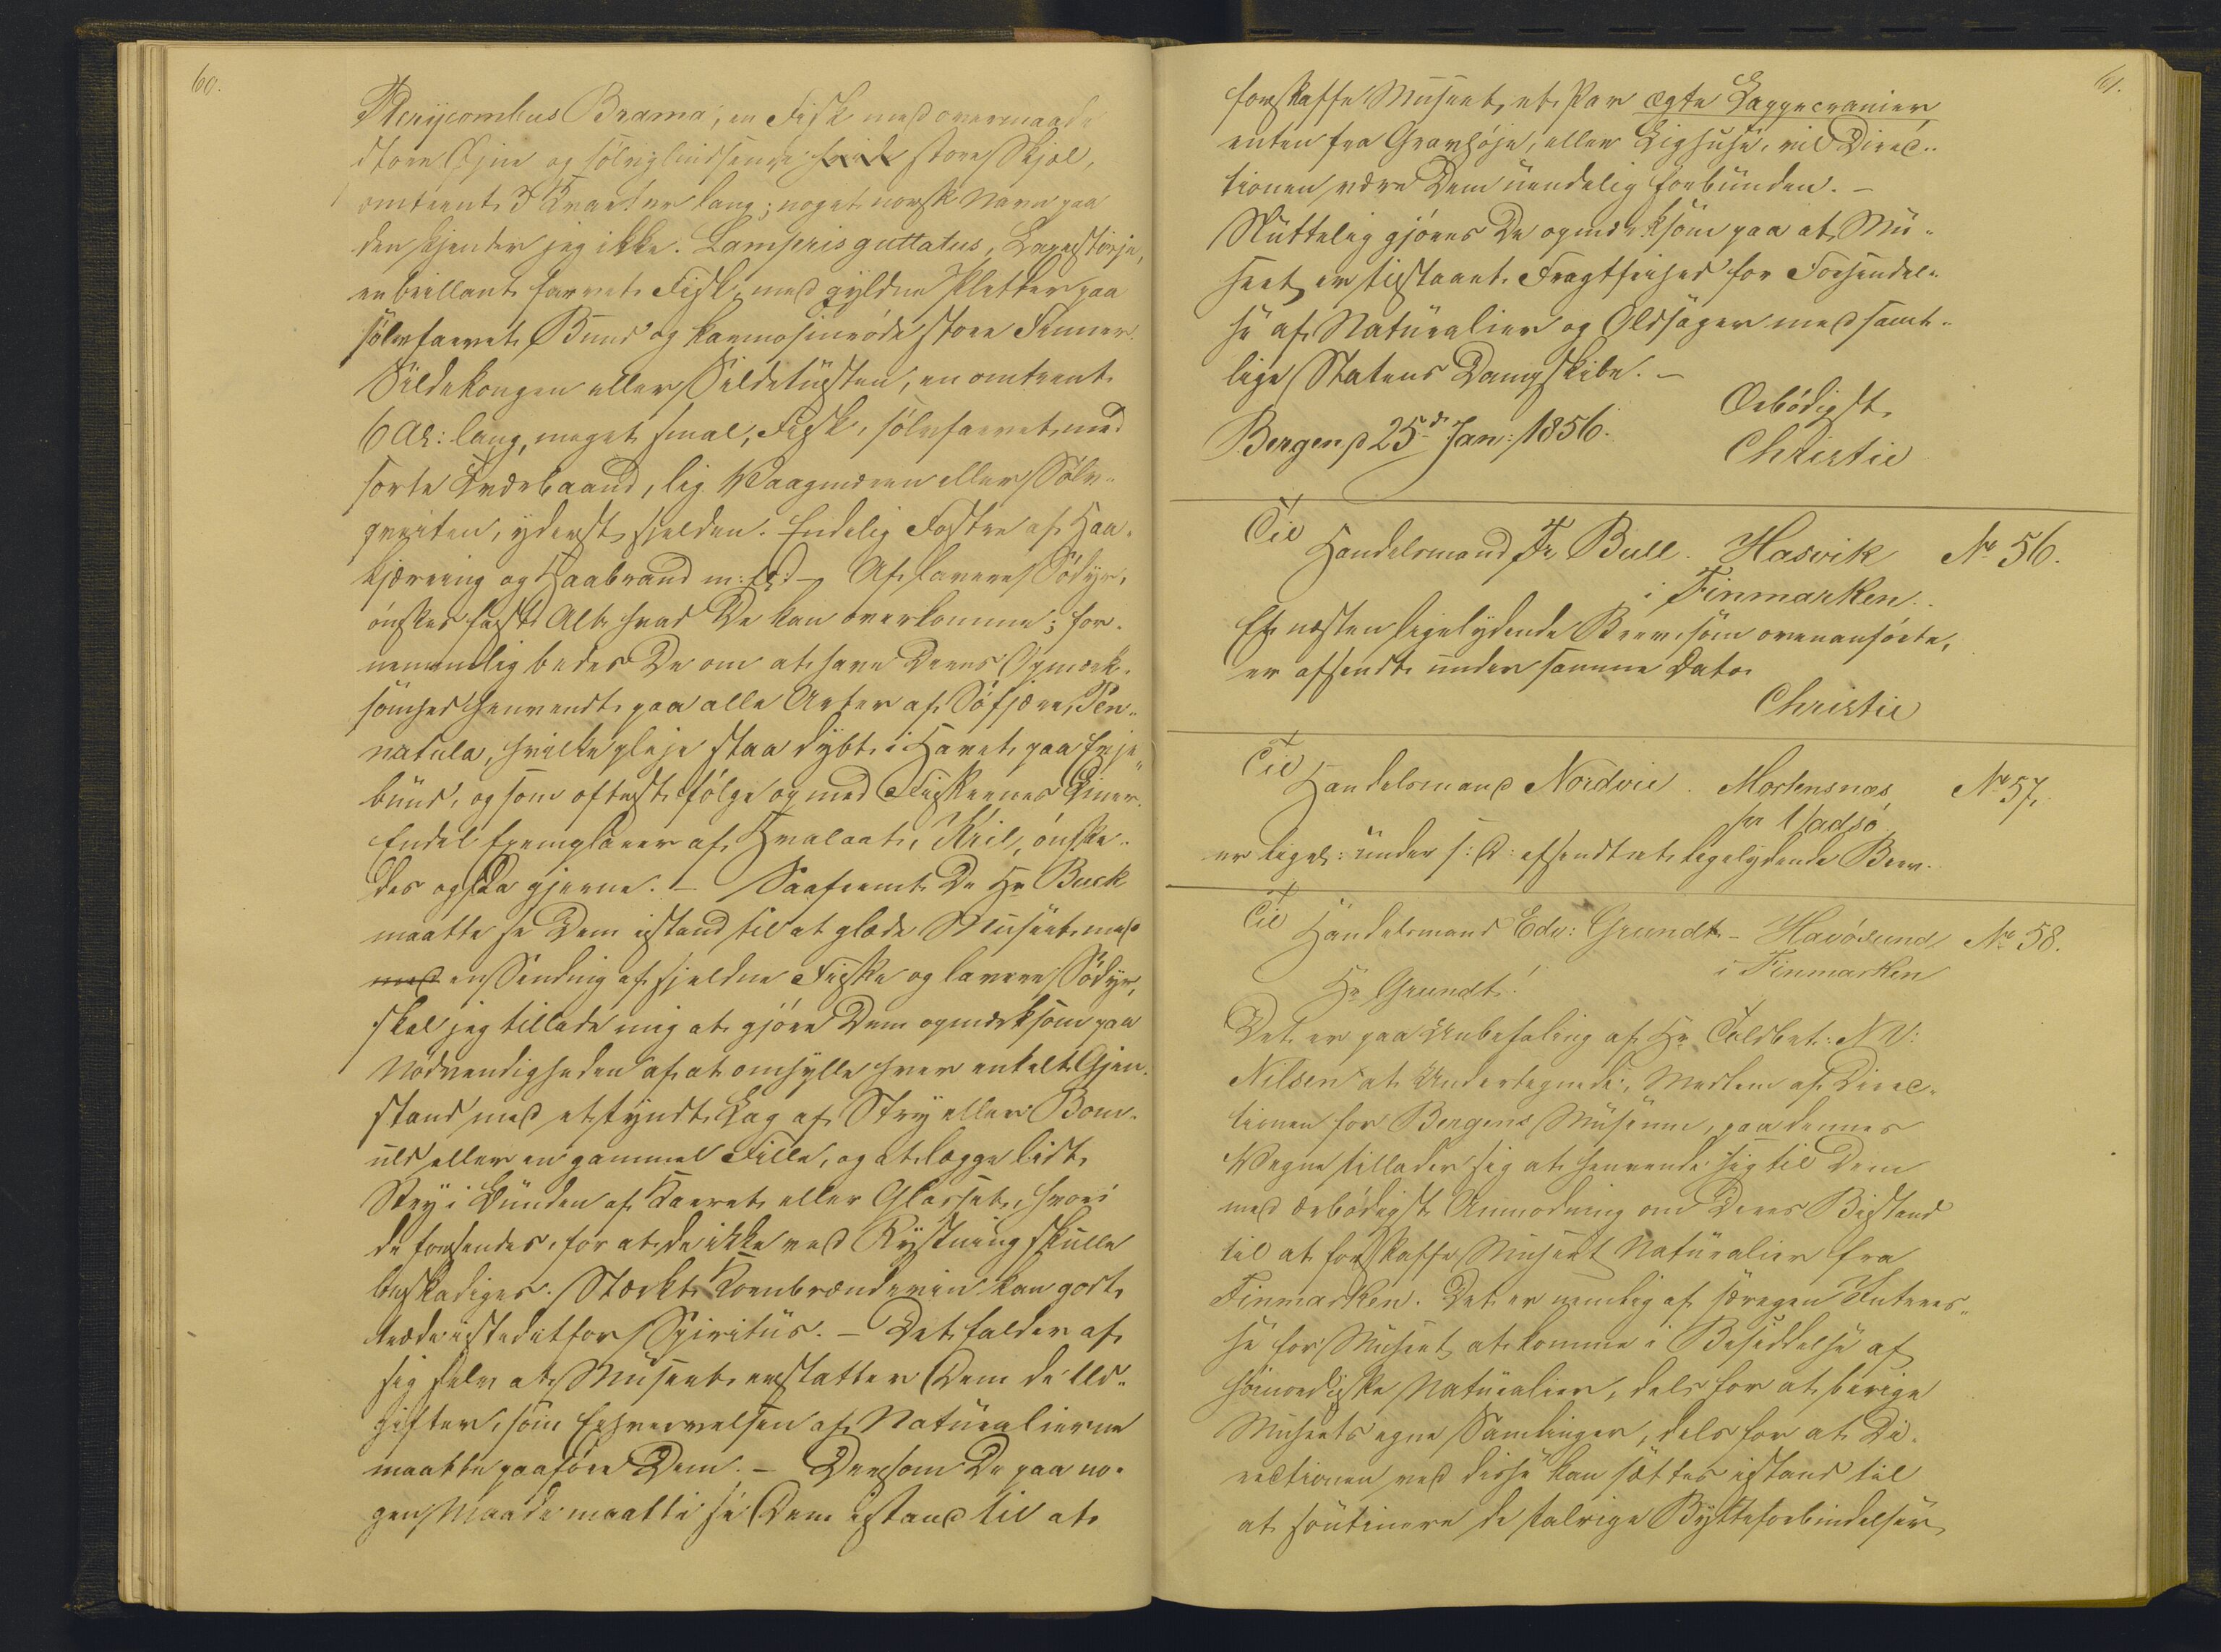 60.
Pterycombus Brama, en Fisk med overmaade
store Øjne og sølvglindsende hvide store Skjæl,
omtrent 3 Kvarter lang; noget norsk Navn paa
den kjender jeg ikke. Lampris guttatus, Laxestørje,
en brillant farvet Fisk, med gyldne Pletter paa
sølvfarvet Bund og karmosinrøde store Finner.
Sildekongen eller Sildetusten, en omtrent
6 Al: lang, meget smal, Fisk, sølvfarvet med
sorte Tværbaand, lig Vaagmæren eller Sølv-
qveiten, yderst sjelden. Endelig Fostre af Haa-
kjærring og Haabrand m: fl: d – Af lavere Sødyr,
ønskes helst Alt hvad De kan overkomme; for-
nemmelig bedes De om at have Deres Opmærk-
somhed henvendt paa alle Arter af Søfjære, Pen-
natula, hvilke pleje staa dybt i Havet paa Evje-
bund, og som oftest følge op med Fiskernes Liner.
Endel Exemplarer af Hvalaat, Kril, ønske-
des ogsaa gjerne. – Saafremt De Hr Buck
maatte se Dem istand til at glæde Museet med
med en Sending af sjeldne Fiske og lavere Sødyr,
skal jeg tillade mig at gjøre Dem opmærksom paa
Nødvendigheden af at omhylle hver enkelt Gjen-
stand med et tyndt Lag af Stry eller Bom-
uld eller en gammel Fille, og at lægge lidt
Stry i Bunden af Karret eller Glasset, hvori
de forsendes, for at de ikke ved Rystning skulle
beskadiges. Stærkt Kornbrændeviin kan godt
træde istedetfor Spiritus. – Det falder af
sig selv at Museet erstatter Dem de Ud-
gifter, som Erhvervelsen af Naturalierne
maatte paaføre Dem. – Dersom De paa no-
gen Maade maatte se Dem istand til at
61.
forskaffe Museet et Par ægte Lappecranier,
enten fra Gravhøje, eller Lighuse, vil Direc-
tionen være Dem uendelig forbunden. –
Sluttelig gjøres De opmærksom paa at Mu-
seet er tilstaaet Fragtfrihed for Forsendel-
se af Naturalier og Oldsager med samt-
lige Statens Dampskibe. –
Ærbødigst
Bergen d 25d Jan: 1856.
Christie
Til
Handelsmand Fr Bull. Hasvik
No 56.
i Finmarken.
Et næsten ligelydende Brev, som ovenanførte,
er afsendt under samme Dato
Christie
Til
Handelsmand Nordvie. Mortensnæs
No 57.
pr Vadsø
er ligel: under s: D: afsendt et ligelydende Brev.
Til
Handelsmand Edv: Grundt – Havøsund
No 58.
i Finmarken
Hr Grundt!
Det er paa Anbefaling af Hr Toldbet: N V:
Nilsen at Undertegnede, Medlem af Direc-
tionen for Bergens Museum, paa dennes
Vegne tillader sig at henvende sig til Dem
med ærbødigst Anmodning om Deres Bistand
til at forskaffe Museet Naturalier fra
Finmarken. Det er nemlig af særegen Interes-
se for Museet at komme i Besiddelse af
højnordiske Naturalier, dels for at berige
Museets egne Samlinger, dels for at Di-
rectionen ved disse kan sættes istand til
at soutinere de talrige Bytteforbindelser,